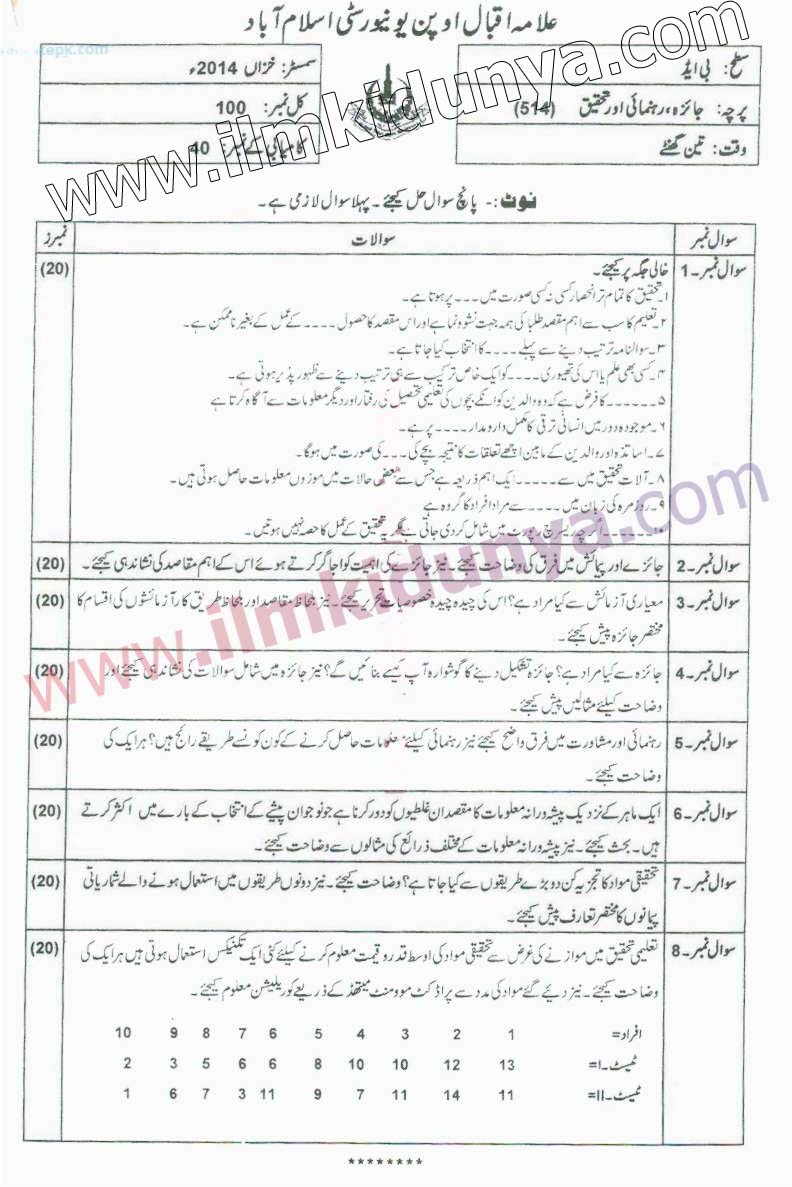 علامہ اقبال اوپن یونیورسٹی اسلام آباد
سطح: بی ایڈ
پرچہ: جائزہ، رہنمائی اور تحقیق (514)
وقت: تین گھنٹے
سمسٹر: خزاں 2014ء
کل نمبر: 100
کامیابی کے نمبر: 40
www.ilmkidunya.com
نوٹ :- پانچ سوال حل کیجئے۔ پہلا سوال لازمی ہے۔
سوال نمبر سوالات نمبرز
سوال نمبر-1 خالی جگہ پر کیجئے۔ (20)
۱۔ تحقیق کا تمام تر انحصار کسی نہ کسی صورت میں ۔۔۔ پر ہوتا ہے۔
۲۔ تعلیم کا سب سے اہم مقصد طلبا کی ہمہ جہت نشوونما ہے اور اس مقصد کا حصول ۔۔۔۔ کے عمل کے بغیر ناممکن ہے۔
۳۔ سوالنامہ ترتیب دینے سے پہلے ۔۔۔۔ کا انتخاب کیا جاتا ہے۔
۴۔ کسی بھی علم یا اس کی تھیوری ۔۔۔۔ کو ایک خاص ترکیب سے ہی ترتیب دینے سے ظہور پذیر ہوتی ہے۔
۵۔۔۔۔۔۔ کا فرض ہے کہ وہ والدین کو انکے بچوں کی تعلیمی تحصیل کی رفتار اور دیگر معلومات سے آگاہ کرتا ہے
۶۔ موجودہ دور میں انسانی ترقی کا مکمل دارومدار ۔۔۔۔ پر ہے۔
۷۔ اساتذہ اور والدین کے مابین اچھے تعلقات کا نتیجہ بچے کی ۔۔۔ کی صورت میں ہوگا۔
۸۔ آلات تحقیق میں سے ۔۔۔۔۔ ایک اہم ذریعہ ہے جس سے بعض حالات میں موزوں معلومات حاصل ہوتی ہیں۔
۹۔ روزمرہ کی زبان میں ۔۔۔۔ سے مراد افراد کا گروہ ہے
۱۰۔۔۔۔۔ اگرچہ ریسرچ رپورٹ میں شامل کر دی جاتی ہے مگر یہ تحقیق کے عمل کا حصہ نہیں ہوتیں۔
سوال نمبر-2 جائزے اور پیمائش میں فرق کی وضاحت کیجئے۔ نیز جائزے کی اہمیت کو اجاگر کرتے ہوئے اس کے اہم مقاصد کی نشاندہی کیجئے۔ (20)
سوال نمبر-3 معیاری آزمائش سے کیا مراد ہے؟ اس کی چیدہ چیدہ خصوصیات تحریر کیجئے۔ نیز بلحاظ مقاصد اور بلحاظ طریق کار آزمائشوں کی اقسام کا (20)
مختصر جائزہ پیش کیجئے۔
سوال نمبر-4 جائزہ سے کیا مراد ہے؟ جائزہ تشکیل دینے کا گوشوارہ آپ کیسے بنائیں گے؟ نیز جائزہ میں شامل سوالات کی نشاندہی کیجئے اور (20)
وضاحت کیلئے مثالیں پیش کیجئے۔
سوال نمبر-5 رہنمائی اور مشاورت میں فرق واضح کیجئے نیز رہنمائی کیلئے معلومات حاصل کرنے کے کون کونسے طریقے رائج ہیں؟ ہر ایک کی (20)
وضاحت کیجئے۔
سوال نمبر-6 ایک ماہر کے نزدیک پیشہ ورانہ معلومات کا مقصد ان غلطیوں کو دور کرنا ہے جو نوجوان پیشے کے انتخاب کے بارے میں اکثر کرتے (20)
ہیں۔ بحث کیجئے۔ نیز پیشہ ورانہ معلومات کے مختلف ذرائع کی مثالوں سے وضاحت کیجئے۔
سوال نمبر-7 تحقیقی مواد کا تجزیہ کن دو بڑے طریقوں سے کیا جاتا ہے؟ وضاحت کیجئے۔ نیز دونوں طریقوں میں استعمال ہونے والے شماریاتی (20)
پیمانوں کا مختصر تعارف پیش کیجئے۔
سوال نمبر-8 تعلیمی تحقیق میں موازنے کی غرض سے تحقیقی مواد کی اوسط قدر و قیمت معلوم کرنے کیلئے کئی ایک تکنیکس استعمال ہوتی ہیں ہر ایک کی (20)
وضاحت کیجئے۔ نیز دیئے گئے مواد کی مدد سے پراڈکٹ موومنٹ میتھڈ کے ذریعے کوریلیشن معلوم کیجئے۔
افراد= 1 2 3 4 5 6 7 8 9 10
ٹیسٹ-I= 13 12 10 10 8 6 6 5 3 2
ٹیسٹ-II= 11 14 11 7 9 11 3 7 6 1
********
www.ilmkidunya.com